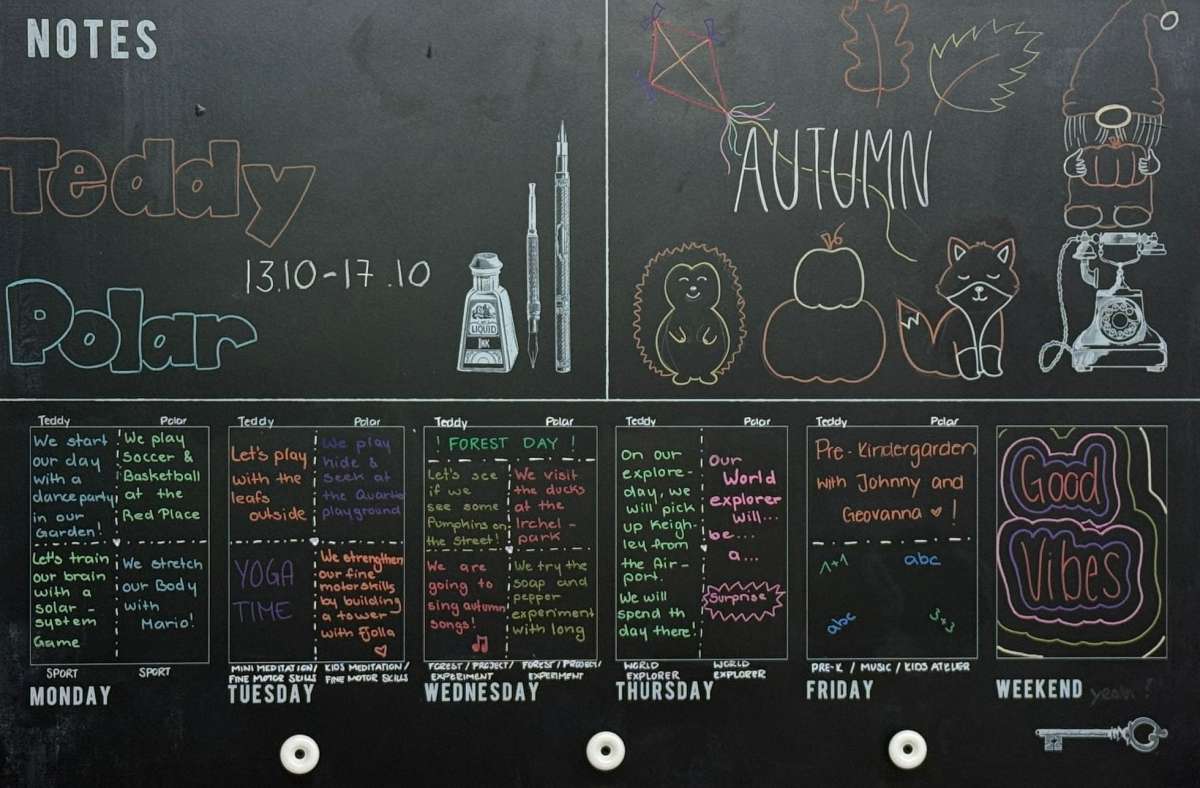 NOTES
Teddy
13.10-17.10
Polar
LIQUID
INK
AUTUMN
Teddy Polar
We start
our day
with a
dance party
in our
Garden!
We play
soccer &
Basketball
at the
Red Place
Let's train
our brain
with a
solar-
system
Game
We stretch
our Body
with
Mario!
SPORT SPORT
MONDAY
Teddy Polar
Let's play
with the
leafs
outside
We play
hide &
seek at
the Quartier
playground
YOGA
TIME
We strengthen
our fine
motorskills
by building
a tower
with Fjolla
MINI MEDITATION/
FINE MOTOR SKILLS
KIDS MEDITATION/
FINE MOTOR SKILLS
TUESDAY
Teddy Polar
! FOREST DAY !
Let's see
if we
see some
Pumpkins on
the Street!
We visit
the ducks
at the
Irchel-
park
We are
going to
sing autumn
songs!
We try the
soap and
pepper
experiment
with long
FOREST/PROJECT/
EXPERIMENT
FOREST/PROJECT/
EXPERIMENT
WEDNESDAY
Teddy Polar
On our
explore-
day, we
will pick
up Keigh-
ley from
the Air-
port.
We will
spend th
day there!
Our
World
explorer
will...
be...
a...
Surprise
WORLD
EXPLORER
WORLD
EXPLORER
THURSDAY
Teddy Polar
Pre-Kindergarden
with Johnny and
Geovanna !
1+1 abc
abc 3+3
PRE-K / MUSIC / KIDS ATELIER
FRIDAY
Good
Vibes
WEEKEND yeah!